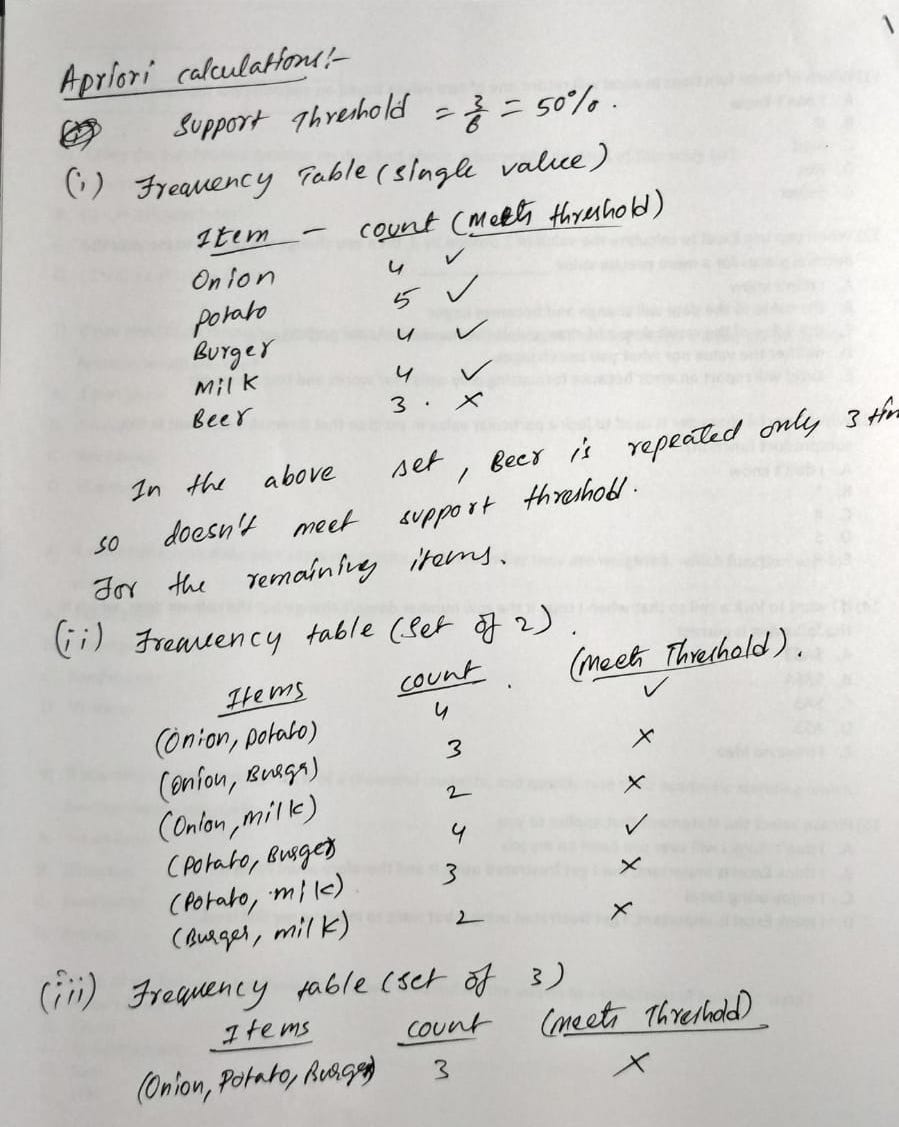 Apriori calculations:-
Support Threshold = 3/6 = 50%.
(i) Frequency Table (single value)
Item - count (Meets threshold)
Onion 4 ✓
potato 5 ✓
Burger 4 ✓
Milk 4 ✓
Beer 3. ×
In the above set, Beer is repeated only 3
so doesn't meet support threshold.
For the remaining items.
(ii) Frequency table (Set of 2).
Items count. (meets Threshold).
(Onion, potato) 4 ✓
(Onion, Burger) 3 ×
(Onion, milk) 2 ×
(Potato, Burger) 4 ✓
(Potato, milk) 3 ×
(Burger, milk) 2 ×
(iii) Frequency table (set of 3)
Items count (meets Threshold)
(Onion, Potato, Burger) 3 ×